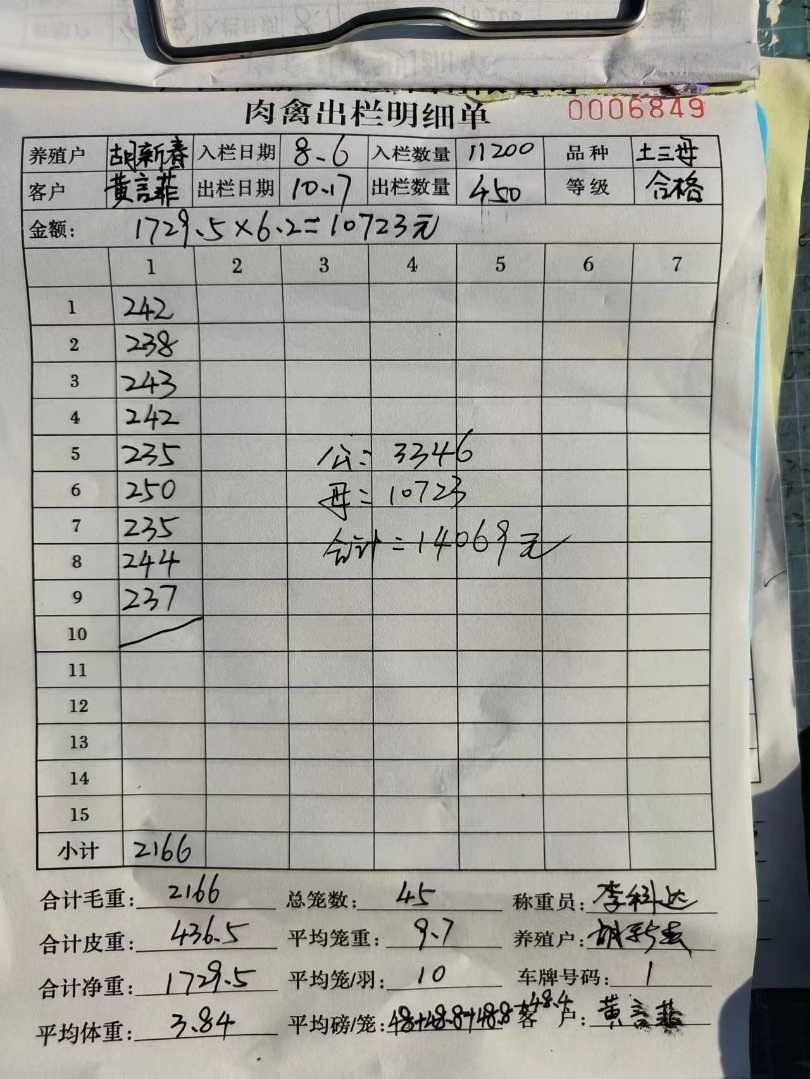 肉禽出栏明细单 0006849
养殖户 胡新春 入栏日期 8.6 入栏数量 11200 品种 土三母
客户 黄言菲 出栏日期 10.17 出栏数量 450 等级 合格
金额: 1729.5×6.2=10723元
1 2 3 4 5 6 7
1 242
2 238
3 243
4 242
5 235 公: 3346
6 250 母=10723
7 235
8 244 合计=14069元
9 237
10
11
12
13
14
15
小计 2166
合计毛重: 2166 总笼数: 45 称重员: 李科达
合计皮重: 436.5 平均笼重: 9.7 养殖户: 胡新春
合计净重: 1729.5 平均笼/羽: 10 车牌号码: 1
平均体重: 3.84 平均磅/笼: 48+48.8+48.8+48.4 客户: 黄言菲